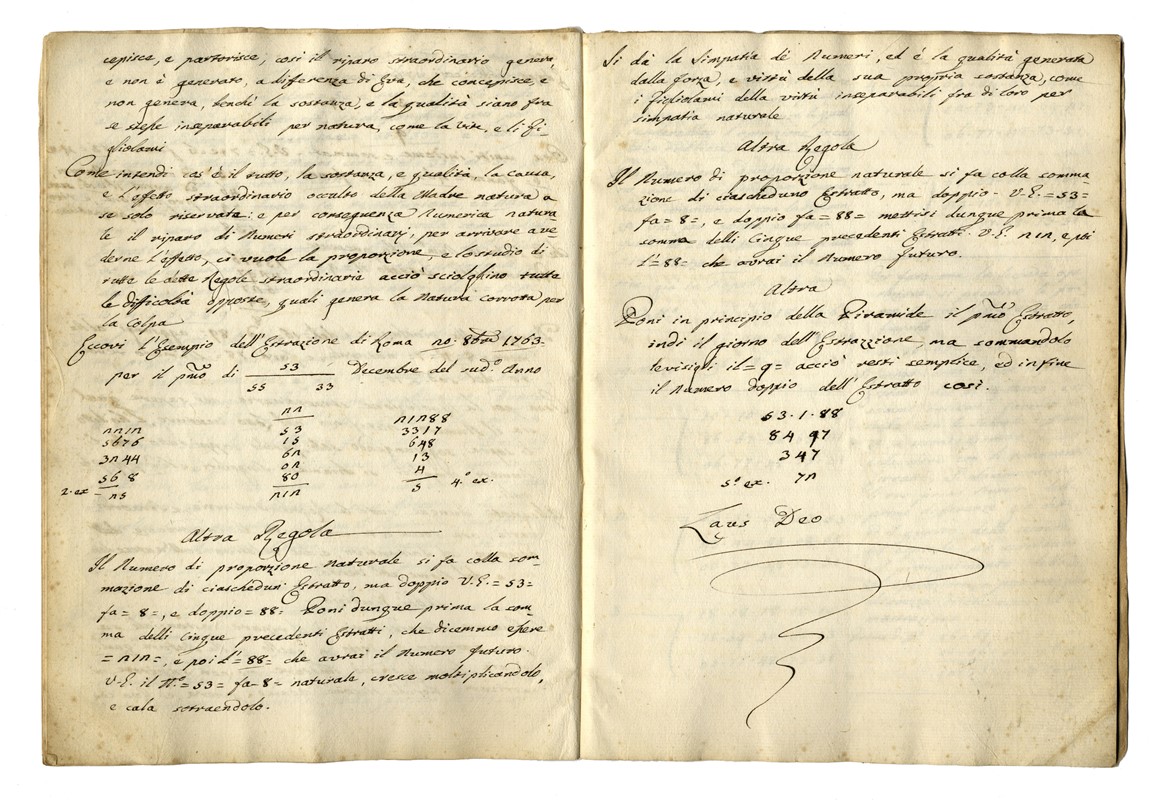 cepisce, e partorisce, così il riparo straordinario genera,
e non è generato, a differenza di Eva, che concepisce, e
non genera, benchè la sostanza, e la qualità siano fra
se stesse inseparabili per natura, come la Vite, e li fi-
gliolami
Come intendi cos'è il tutto, la sostanza, e qualità, la causa,
e l'effetto straordinario occulto della Madre natura a
se solo riservata: e per conseguenza Numerica natura
le il riparo di Numeri straordinarj, per arrivare a ve-
derne l'effetto, ci vuole la proporzione, e lo studio di
tutte le dette Regole straordinarie acciò sciolghino tutte
le difficoltà opposte, quali genera la Natura corrotta per
la colpa
Eccovi l'Esempio dell'Estrazione di Roma no. 8bre 1763.
per il pmo di 53 Decembre del sudo. Anno
55 33
nn
nnin
5676
3n44
568
2. ex ns
53
15
6n
on
80
nin
nin88
3317
648
13
4
5 4o. ex.
Altra Regola
Il Numero di proporzione naturale si fa colla som-
mazione di ciascheduni Estratto, ma doppio V.E. = 53=
fa= 8=, e doppio= 88= Poni dunque prima la som-
ma delli Cinque precedenti Estratti, che dicemmo essere
= nin=, e poi l'= 88= che avrai il Numero futuro.
V.E. il No.= 53= fa= 8= naturale, cresce moltiplicandolo,
e cala sotraendolo.
Si dà la Simpatia de Numeri, ed è la qualità generata
dalla forza, e virtù della sua propria sostanza, come
i figliolami della virtù inseparabili fra di loro per
simpatia naturale
Altra Regola
Il Numero di proporzione naturale si fa colla somma-
zione di ciascheduno Estratto, ma doppio. V.E. = 53=
fa= 8=, e doppio fa= 88= mettisi dunque prima la
somma delli Cinque precedenti Estratti. V.E. nin, e poi
l'= 88= che avrai il Numero futuro.
Altra
Poni in principio della Piramide il pmo Estratto,
indi il giorno dell'Estrazzione, ma sommandolo
levisigli il= 9= acciò resti semplice, ed in fine
il Numero doppio dell'Estratto così.
53. 1. 88
84 97
347
5o. ex. 7n
Laus Deo